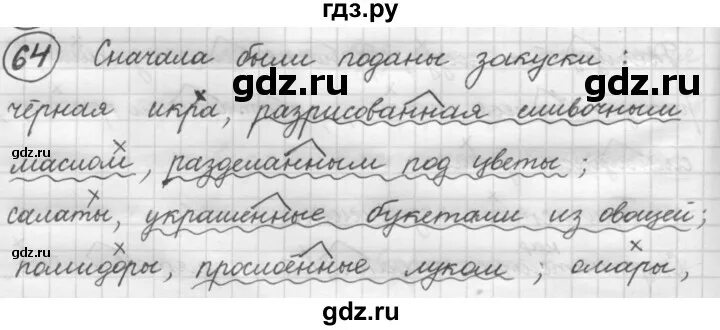 гдз.ру
64 Сначала были поданы закуски:
gdz.ru gdz.ru
чёрная икра, разрисованная сливочным
gdz.ru
маслом, разделанным под цветы;
gdz.ru
салаты, украшенные букетами из овощей;
gdz.ru gdz.ru
помидоры, прослоенные луком; омары,
gdz.ru